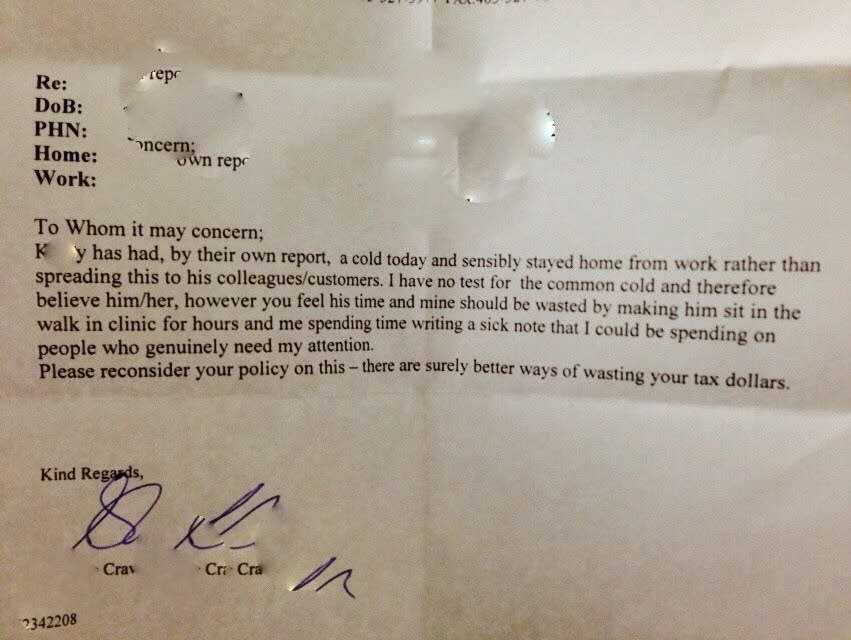 Re:
DoB:
PHN:
Home:
own
Work:
To Whom it may concern;
K y has had, by their own report, a cold today and sensibly stayed home from work rather than
spreading this to his colleagues/customers. I have no test for the common cold and therefore
believe him/her, however you feel his time and mine should be wasted by making him sit in the
walk in clinic for hours and me spending time writing a sick note that I could be spending on
people who genuinely need my attention.
Please reconsider your policy on this – there are surely better ways of wasting your tax dollars.
Kind Regards,
2342208